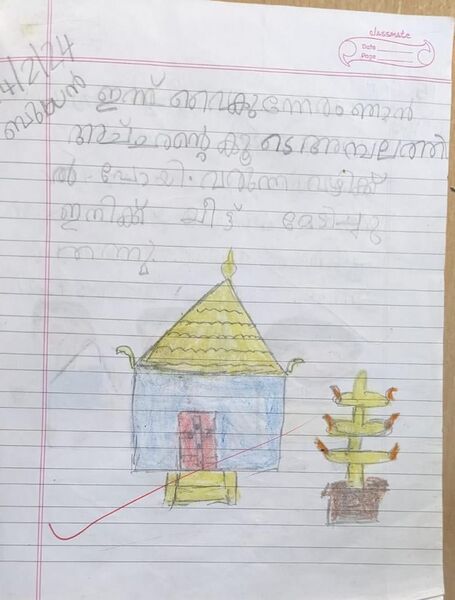 classmate
Date
Page
4/2/24
ബുധൻ
ഇന്ന് വൈകുന്നേരം ഞാൻ
അച്ഛൻ്റെ കൂടെ അമ്പലത്തി
ൽ പോയി. വരുന്ന വഴിക്ക്
ഇനിക്ക് മേടിച്ചു
തന്നു.